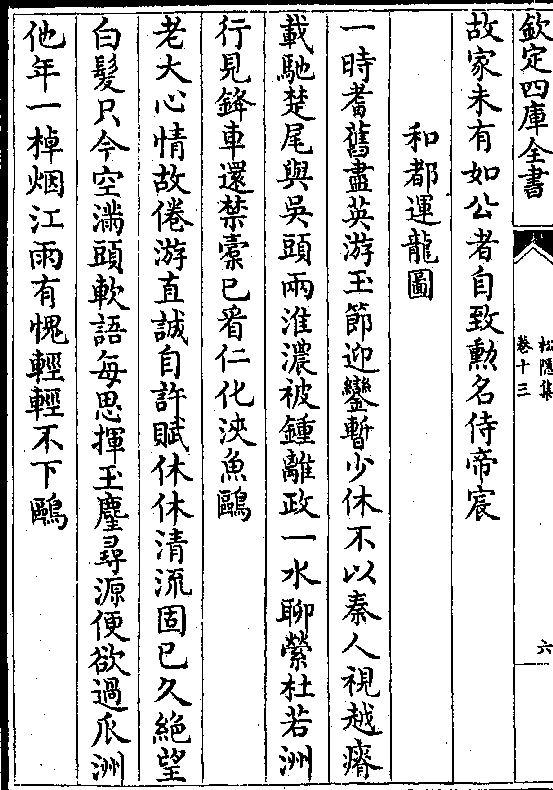 欽定四庫全書
松隱集
卷十三
六
故家未有如公者自致勲名侍帝宸
和都運龍圖
一時耆舊盡英游玉節迎鑾暫少休不以秦人視越瘠
載馳楚尾與吳頭兩淮濃被鍾離政一水聊縈杜若洲
行見鋒車還禁橐已看仁化浹魚鷗
老大心情故倦游直誠自許賦休休清流固已久絶望
白髪只今空滿頭軟語每思揮玉麈尋源便欲過瓜洲
他年一棹烟江雨有愧輕輕不下鷗